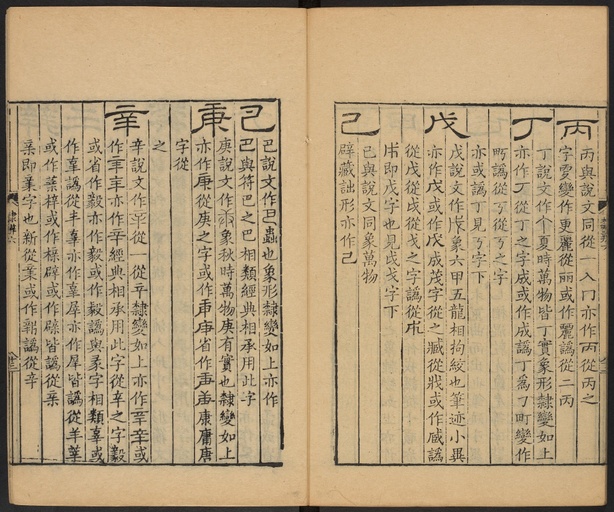 丙
丙與說文同從一入冂亦作丙從丙之
字夏變作更麗從丽或作麗譌從二丙
丁
丁說文作个夏時萬物皆丁實象形隸變如上
亦作丁從丁之字成或作成譌丁為丁町變作
町譌從丂從丂之字
亦或譌丁見丂字下
戊
戊說文作戊象六甲五龍相拘絞也筆迹小異
亦作戊或作戊成茂字從之臧從戕或作臧譌
從戊從戊從戊之字譌從朮
朮即戊字也見戊戈字下
己
己與說文同象萬物
辟藏詘形亦作己
巳
巳說文作巳蟲也象形隸變如上亦作
巴與符巴之巴相類經典相承用此字
庚
庚說文作庚象秋時萬物庚有實也隸變如上
亦作庚從庚之字或作
省作
康庸唐
字從
之
辛
辛說文作辛從一從辛隸變如上亦作辛辛或
作亲亲亦作辛經典相承用此字從辛之字穀
或省作毅亦作毅或作毅譌與彖字相類辜或
作辜譌從羊辜亦作辜犀亦作犀皆譌從羊莘
或作莘梓或作梓辟或作辟皆譌從亲
亲即業字也新從業或作新譌從辛